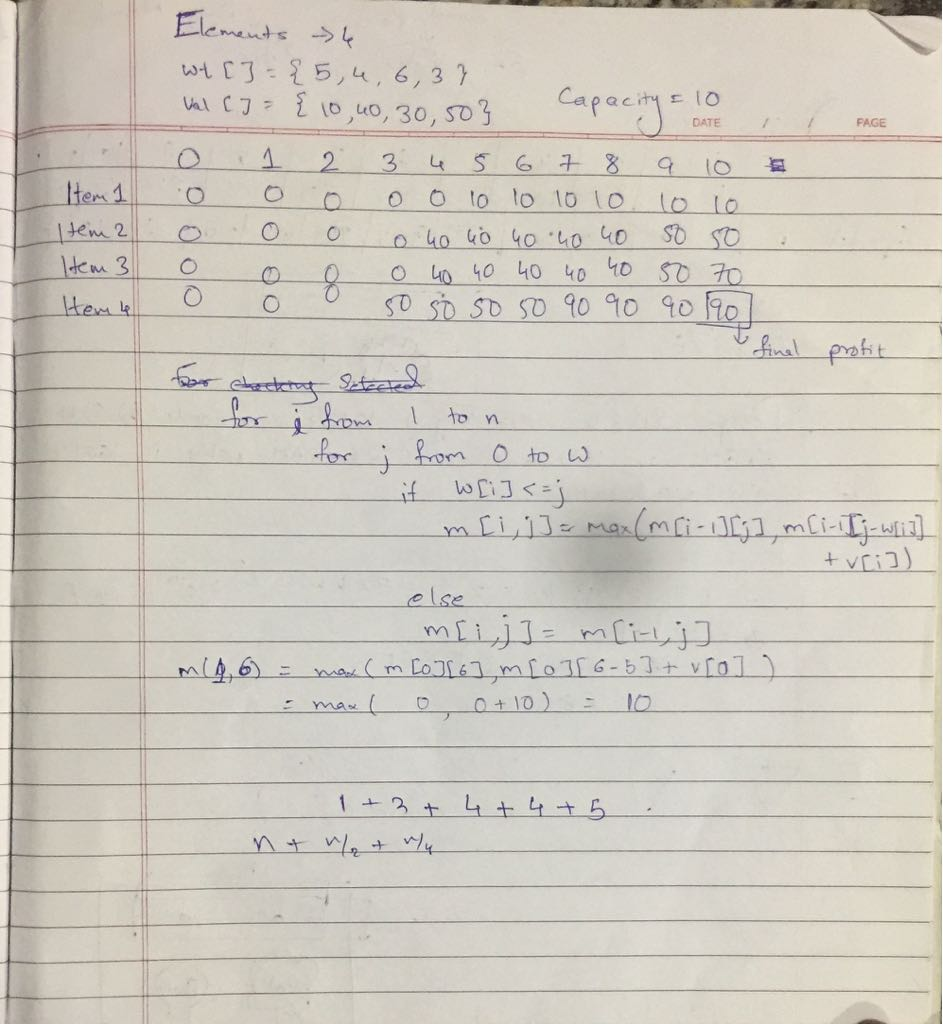 Elements → 4
wt [ ] = { 5, 4, 6, 3 }
Val [ ] = { 10, 40, 30, 50 } Capacity = 10
DATE / / PAGE
0 1 2 3 4 5 6 7 8 9 10
Item 1 0 0 0 0 0 10 10 10 10 10 10
Item 2 0 0 0 0 40 40 40 40 40 50 50
Item 3 0 0 0 0 40 40 40 40 40 50 70
Item 4 0 0 0 50 50 50 50 90 90 90 90
↓ final profit
For checking Selected
for i from 1 to n
for j from 0 to W
if w[i] <= j
m[i,j] = max(m[i-1][j], m[i-1][j-w[i]]
+ v[i])
else
m[i,j] = m[i-1,j]
m(1,6) = max( m[0][6], m[0][6-5] + v[0] )
= max( 0, 0+10) = 10
1 + 3 + 4 + 4 + 5 .
n + n/2 + n/4